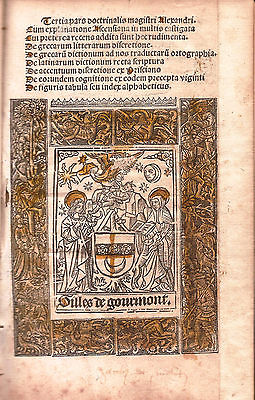 Tertia pars doctrinalis magistri Alexandri.
Cum explanatione Ascensiana in multis castigata
Cui preterea recens addita sunt hec rudimenta.
De grecarum litterarum discretione.
De grecarū dictionum ad nos traductarū ortographia.
De latinarum dictionum recta scriptura
De accentuum discretione ex Prisciano
De eorundem cognitione ex eodem precepta viginti
De figuris tabula seu index alphabeticus.
Gilles de gourmont.